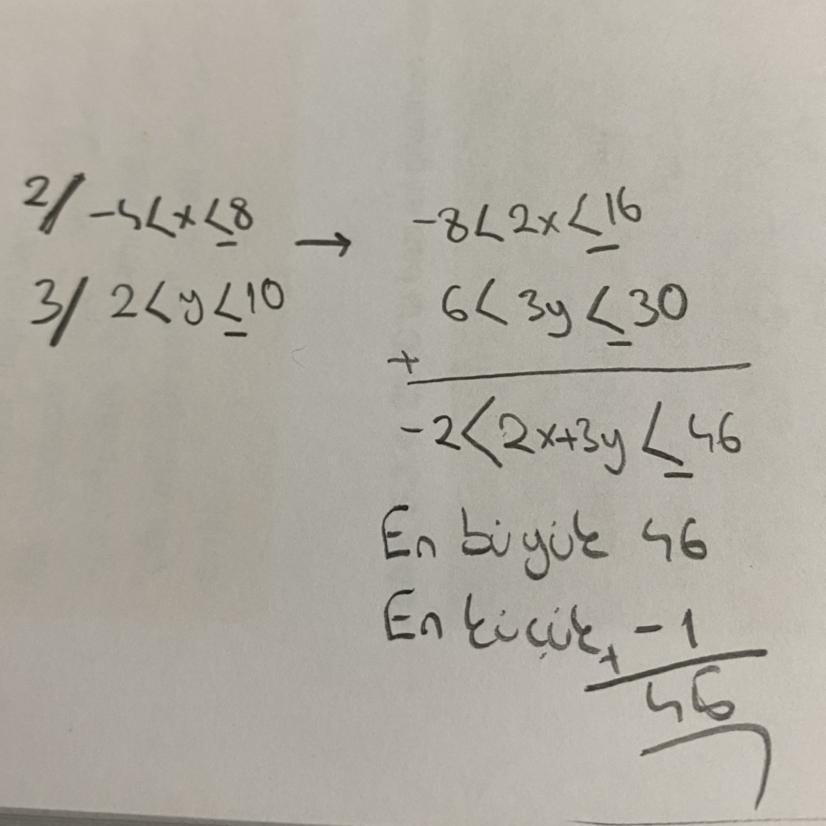 2/ -4<x≤8 → -8<2x≤16
3/ 2<y≤10 6<3y≤30
+
-2<2x+3y≤46
En büyük 46
En küçük + -1
46